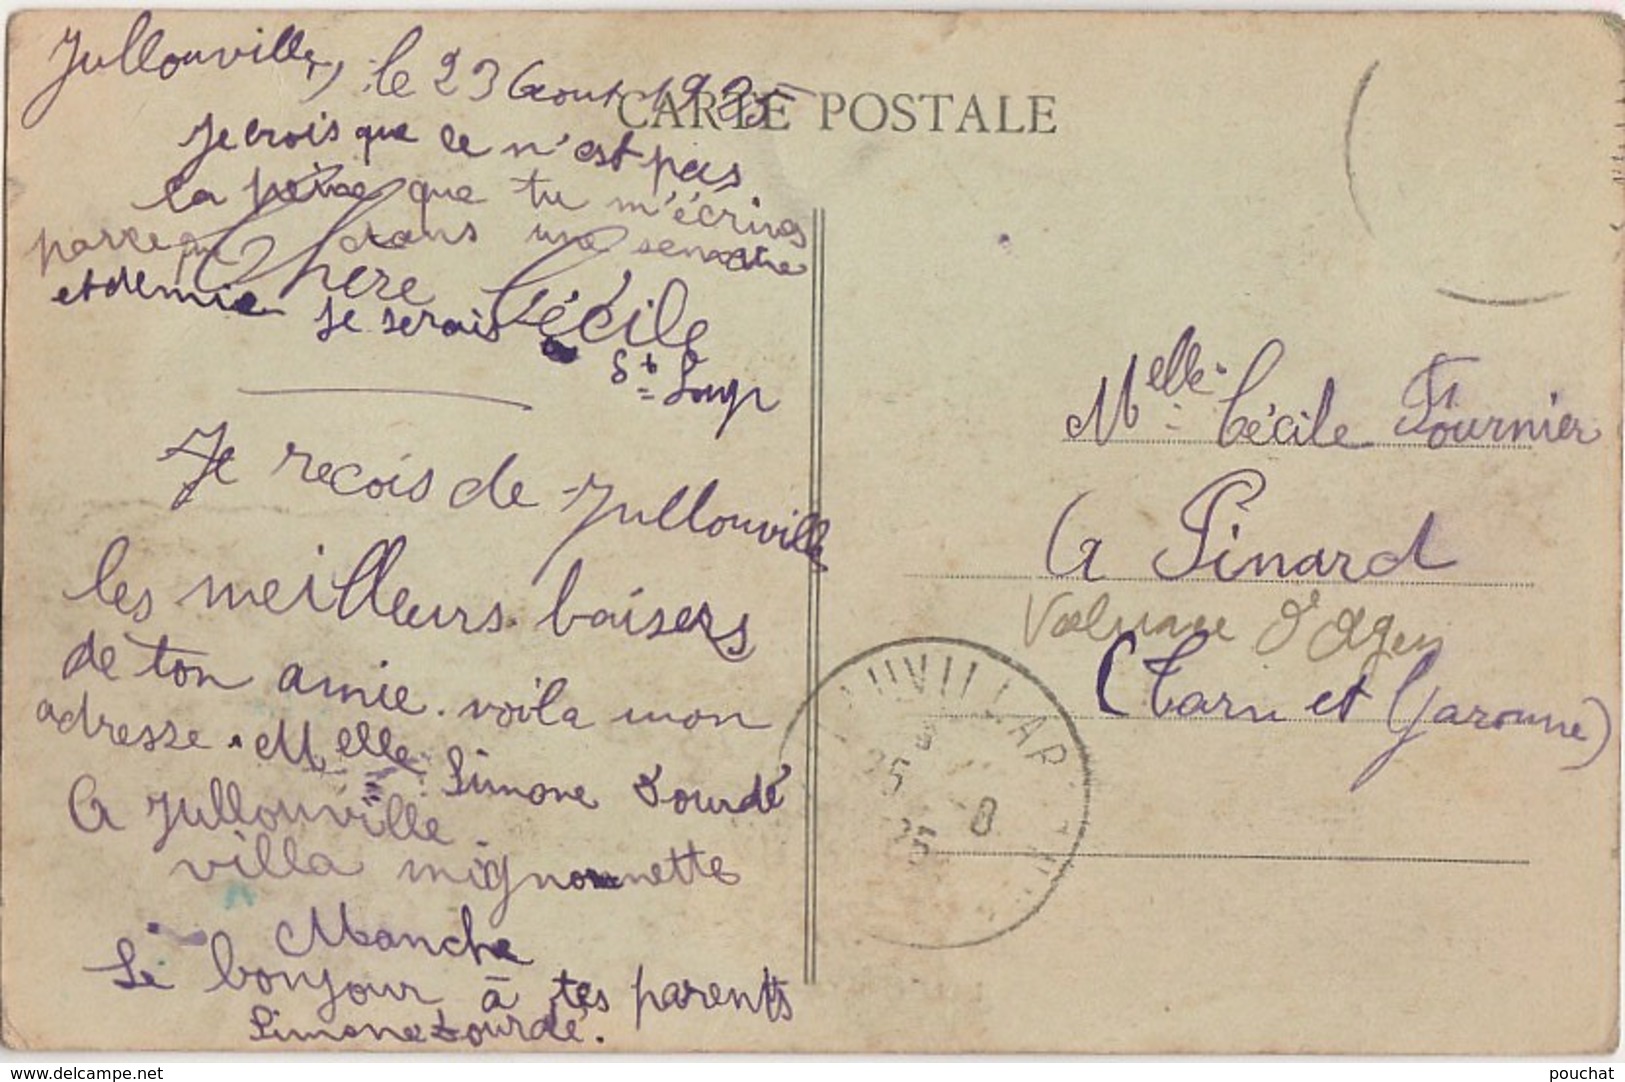 Jullouville, le 23 Aout 1925
CARTE POSTALE
Je crois que ce n'est pas
la peine que tu m'écrives
parce que dans une semaine
et demie je serais a St Loup
Chère Cécile
Je recois de Jullouville
les meilleurs baisers
de ton amie. voila mon
adresse. Melle Simone Lourdé
A Jullouville.
villa mignonnette
Manche
Le bonjour à tes parents
Simone Lourdé.
Melle Cécile Fournier
A Pinard
d'Agen
(Tarn et Garonne)
AUVILLAR
25 - 8
25
www.delcampe.net
pouchat